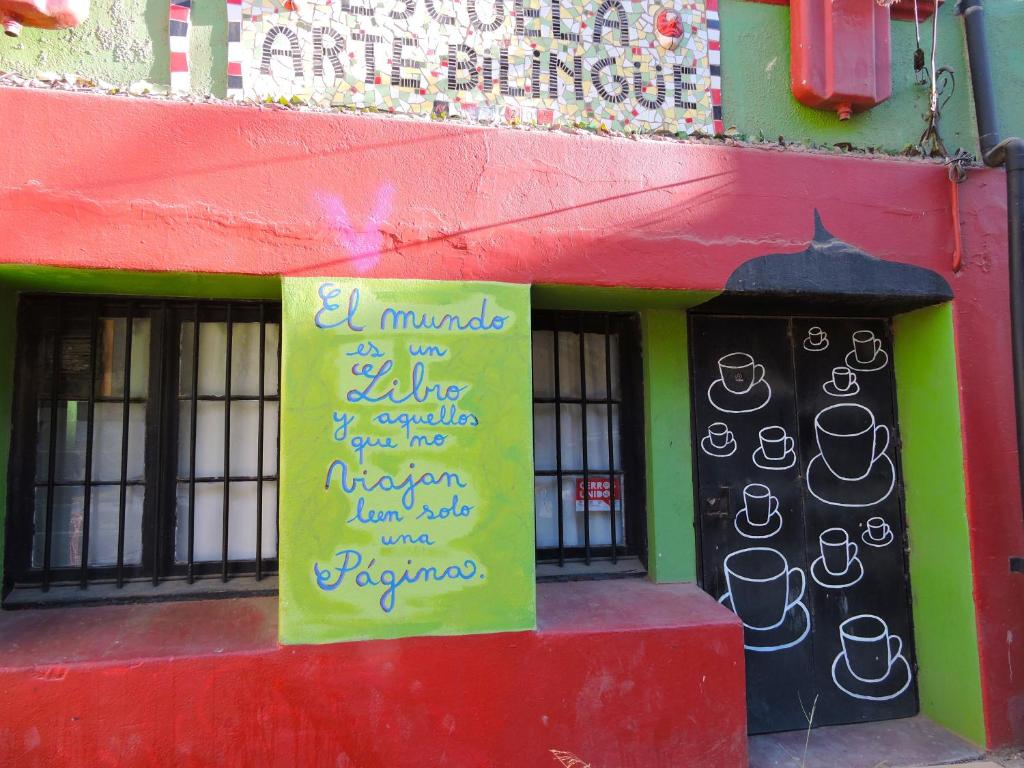 ESCUELA
ARTE BILINGÜE
El mundo
es un
Libro
y aquellos
que no
Viajan
leen solo
una
Página.
CERRO
UNIDO